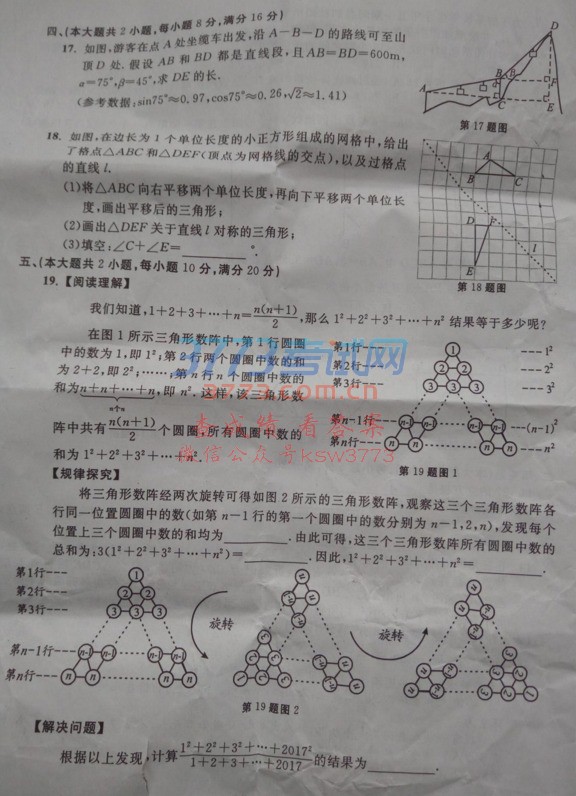 四、(本大题共2小题,每小题8分,满分16分)
17. 如图,游客在点A处坐缆车出发,沿A-B-D的路线可至山
顶D处.假设AB和BD都是直线段,且AB=BD=600m,
α=75°,β=45°,求DE的长.
(参考数据:sin75°≈0.97,cos75°≈0.26,√2≈1.41)
D
A
B
β
α
F
C
E
第17题图
18. 如图,在边长为1个单位长度的小正方形组成的网格中,给出
了格点△ABC和△DEF(顶点为网格线的交点),以及过格点
的直线l.
(1)将△ABC向右平移两个单位长度,再向下平移两个单位长
度,画出平移后的三角形;
(2)画出△DEF关于直线l对称的三角形;
(3)填空:∠C+∠E=______°.
A
B
C
D
F
E
l
第18题图
五、(本大题共2小题,每小题10分,满分20分)
19.【阅读理解】
我们知道,1+2+3+…+n=n(n+1)/2,那么1²+2²+3²+…+n²结果等于多少呢?
在图1所示三角形数阵中,第1行圆圈
中的数为1,即1²;第2行两个圆圈中数的和
为2+2,即2²;……;第n行n个圆圈中数的
和为n+n+…+n,即n².这样,该三角形数
n个n
阵中共有n(n+1)/2个圆圈,所有圆圈中数的
和为1²+2²+3²+…+n².
第1行--- 1 ---1²
第2行--- 2 2 ---2²
第3行--- 3 3 3 ---3²
第n-1行--- n-1 n-1 n-1 n-1 ---(n-1)²
第n行--- n n n n ---n²
第19题图1
3773考试网
3773.com.cn
查成绩 看答案
微信公众号ksw3773
【规律探究】
将三角形数阵经两次旋转可得如图2所示的三角形数阵,观察这三个三角形数阵各
行同一位置圆圈中的数(如第n-1行的第一个圆圈中的数分别为n-1,2,n),发现每个
位置上三个圆圈中数的和均为______.由此可得,这三个三角形数阵所有圆圈中数的
总和为:3(1²+2²+3²+…+n²)=______.因此,1²+2²+3²+…+n²=______.
第1行--- 1
第2行--- 2 2
第3行--- 3 3 3
第n-1行--- n-1 n-1 n-1 n-1
第n行--- n n n n
旋转
旋转
第19题图2
【解决问题】
根据以上发现,计算(1²+2²+3²+…+2017²)/(1+2+3+…+2017)的结果为______.